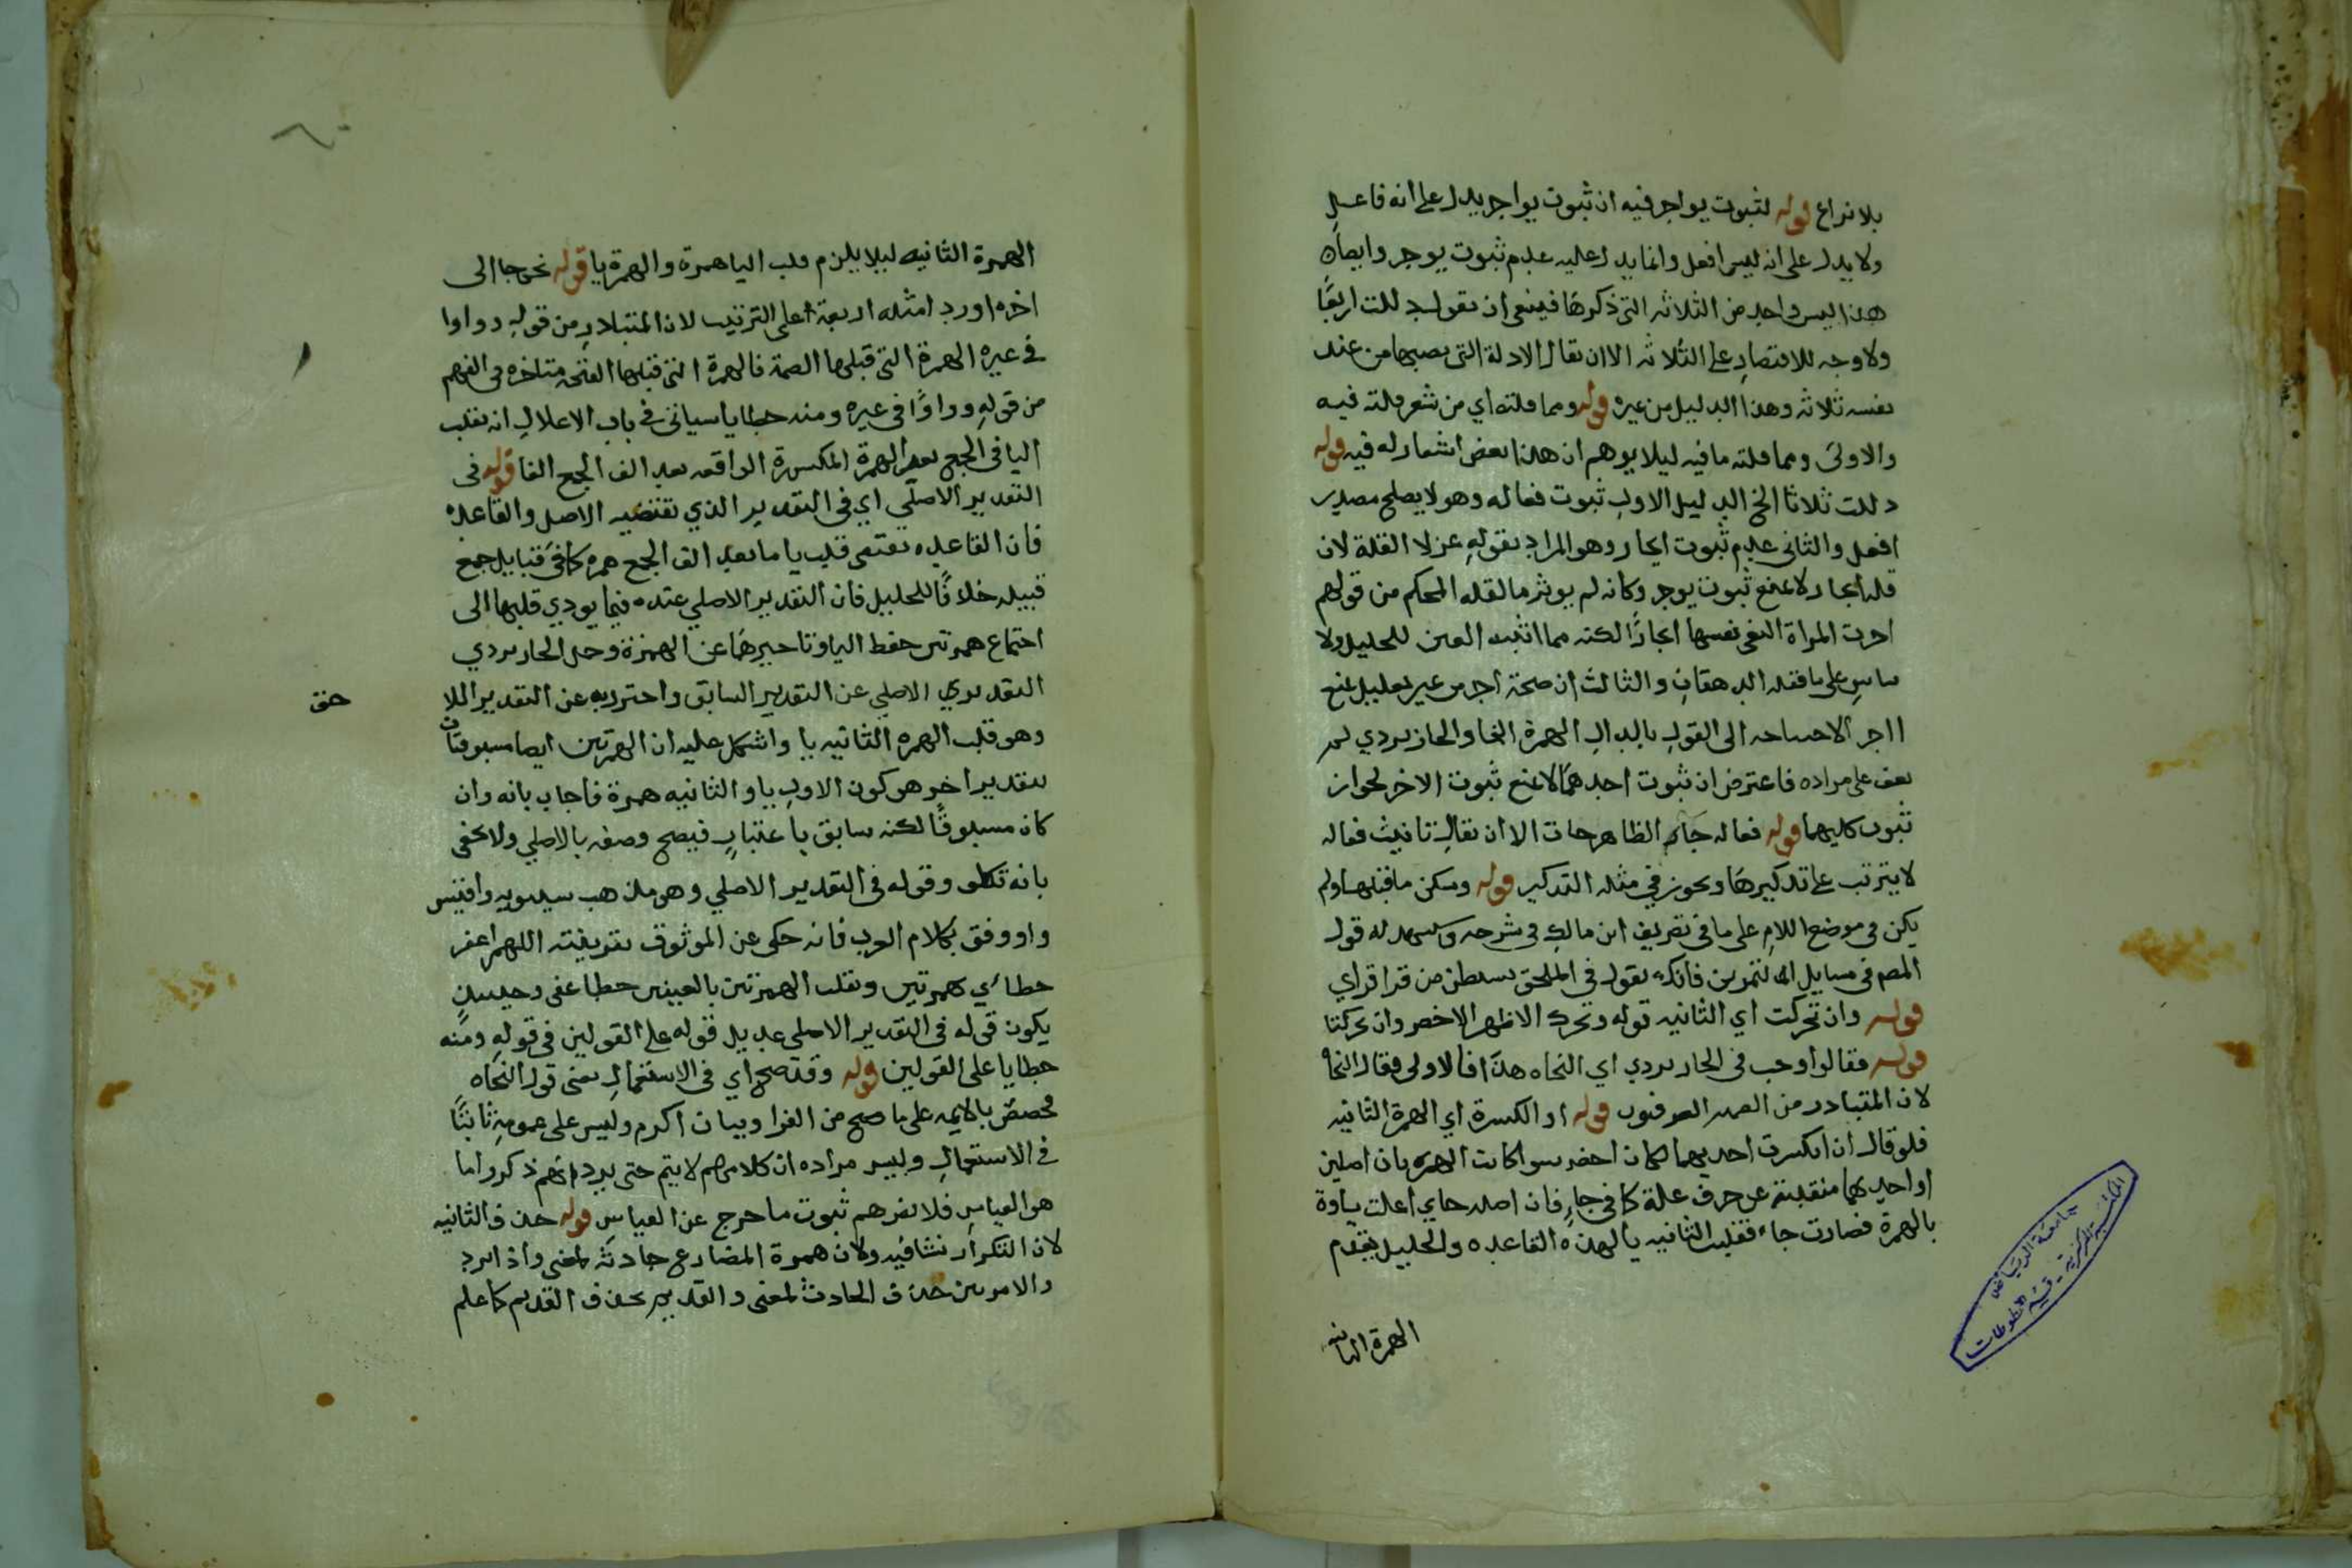 بلا نزاع قوله لثبوت يواجر فيه ان ثبوت يواجر يدل على انه فاعل
ولا يدل على انه ليس افعل وانما يدل عليه عدم ثبوت يوجر وايضا
هذا ليس واحد من الثلاثه التي ذكرها فينبغي ان يقول دللت اربعًا
ولا وجه للاقتصار على الثلاثه الا ان يقال الادلة التي نصبها من عند
نفسه ثلاثه وهذا الدليل من غيره قوله ومما قلته اي من شعر قلته فيه
والاولى ومما قلته ما فيه ليلا يوهم ان هذا بعض اشعار له فيه قوله
دللت ثلاثا الخ الدليل الاول ثبوت فعاله وهو لا يصلح مصدر
افعل والثاني عدم ثبوت ايجار وهو المراد بقوله عز لا القلة لان
قله ايجار لا تمنع ثبوت يوجر وكانه لم يوثر ما نقله المحكم من قولهم
اجرت المراة البغي نفسها ايجارًا لكنه مما اثبت العين للخليل ولا
على ما نقله الدهقان والثالث ان صحة اجر من غير تعليل تمنع
ااجر الى القول بابدال الهمزة الفا والجاربردي لم
يقف على مراده فاعترض ان ثبوت احدهما لا تمنع ثبوت الاخر لجواز
ثبوت كليهما قوله فعاله جاء الظاهر جات الا ان يقال تانيث فعاله
لا يترتب على تذكيرها ويجوز في مثله التذكير قوله وسكن ما قبلها ولم
يكن في موضع اللام على ما في تصريف ابن مالك في شرحه ويشهد له قول
المص في مسايل التمرين فانك تقول في الملحق بسبطر من قرا قراي
قوله وان تحركت اي الثانيه قوله وتحرك الاظهر الاخصر وان تحركتا
قوله فقالوا وجب في الجاربردي اي النحاه هذا فالاولى فقال النحا
لان المتبادر من الصرفيون قوله او الكسرة اي الهمزة الثانيه
فلو قال ان انكسرت احديهما لكان اخصر سوا كانت الهمزتان اصلين
او احديهما منقلبة عن حرف علة كما في جاءٍ فان اصله جاي اعلت ياوه
بالهمزة فصارت جاء فقلبت الثانيه يا لهذه القاعده والخليل يقدم
الهمزة الثانيه
الهمزة الثانيه ليلا يلزم قلب الياء همزة والهمزة يا قوله نحو جا الى
اخره اورد امثله اربعة على الترتيب لان المتبادر من قوله وواوا
في غيره الهمزة التي قبلها الضمة فالهمزة التي قبلها الفتحة متاخره في الفهم
من قوله وواوًا في غيره ومنه خطايا سياتي في باب الاعلال انه تقلب
اليا في الجمع بعد الهمزة المكسورة الواقعه بعد الف الجمع الفا قوله في
التقدير الاصلي اي في التقدير الذي تقتضيه الاصل والقاعده
فان القاعده تقتضي قلب يا ما بعد الف الجمع همزه كما في قبايل جمع
قبيله خلافًا للخليل فان التقدير الاصلي عنده فيما يودي قلبها الى
اجتماع همزتين حفظ اليا وتاخيرها عن الهمزة وحمل الجاربردي
التقدير الاصلي عن التقدير السابق واحترز به عن التقدير اللا
حق
وهو قلب الهمزه الثانيه يا واشكل عليه ان الهمزتين ايضا مسبوقتان
بتقدير اخر هو كون الاولى يا والثانيه همزة فاجاب بانه وان
كان مسبوقًا لكنه سابق باعتبار فيصح وصفه بالاصلي ولا يخفى
بانه تكلف وقوله في التقدير الاصلي وهو مذهب سيبويه واقيس
واوفق بكلام العرب فانه حكى عن الموثوق اللهم اغفر
خطائي همزتين وتقلب الهمزتين خطاءي وحينيذٍ
يكون قوله في التقدير الاصلي عديل قوله على القولين في قوله ومنه
خطايا على القولين قوله وقد صح اي في الاستعمال يعني قول النحاه
مخصص بالايمه على ما صح من القرا وبيان اكرم وليس على عمومه ثابتًا
في الاستعمال وليس مراده ان كلامهم لا يتم حتى يرد انهم ذكروا ما
هو القياس فلا يضرهم ثبوت ما خرج عن القياس قوله حذف الثانيه
لان التكرار نشا فيه ولان همزة المضارع حادثه لمعنى واذا برد
والامرين حذف الحادث لمعنى والقديم يحذف القديم كما علم